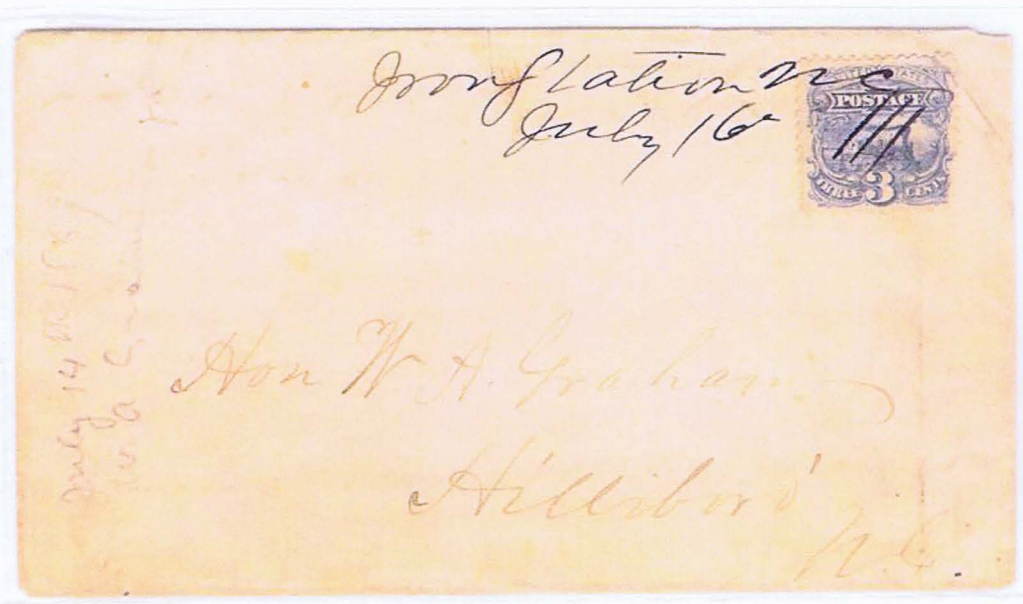 Iron Station N C
July 16
UNITED STATES
POSTAGE
THREE 3 CENTS
Hon W A. Graham
Hillsboro'
N.C.
July 14